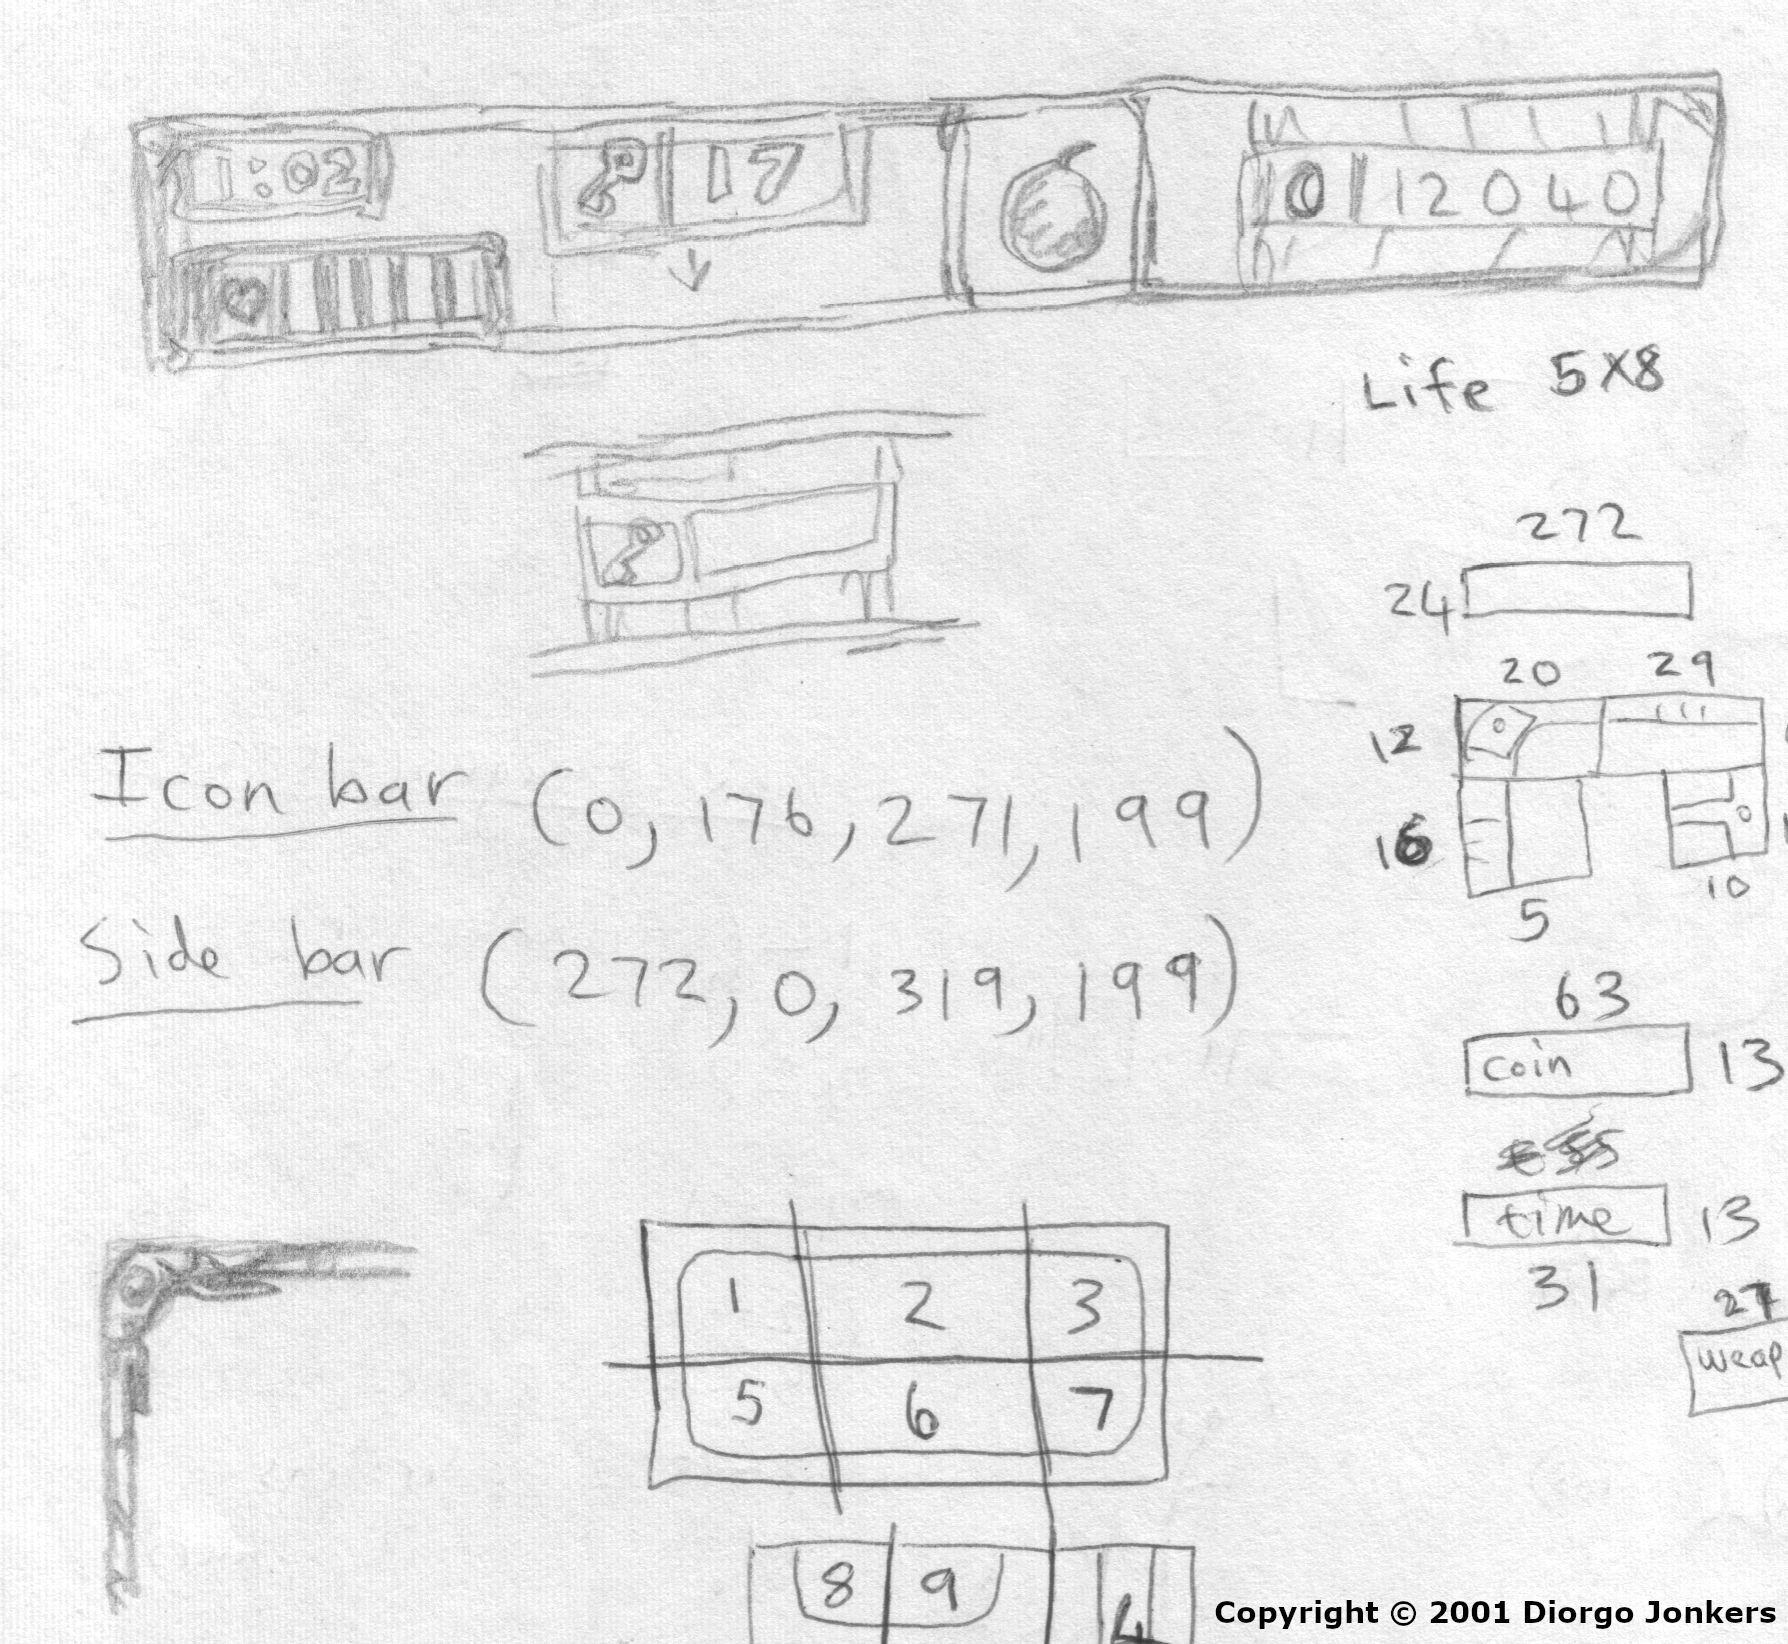 1:02
17
0 12040
Life 5x8
272
24
20 29
12
16
5
10
Icon bar (0, 176, 271, 199)
Side bar (272, 0, 319, 199)
63
coin 13
time 13
31
27
weap
1 2 3
5 6 7
8 9 4
Copyright © 2001 Diorgo Jonkers